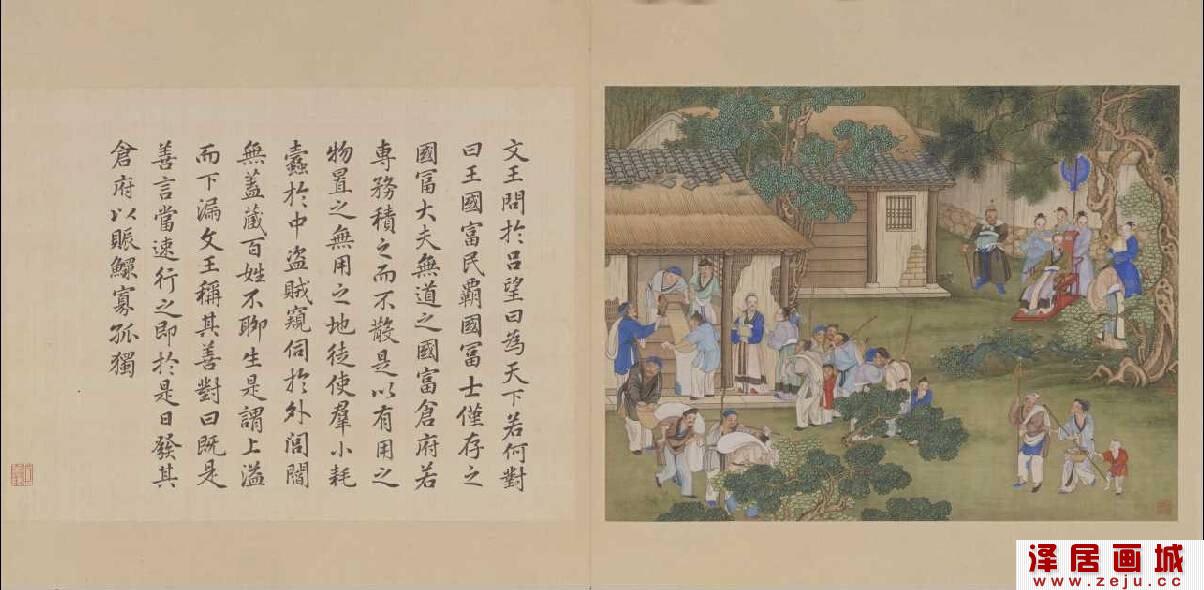 文王問於呂望曰為天下若何對
曰王國富民霸國冨士僅存之
國冨大夫無道之國富倉府若
專務積之而不散是以有用之
物置之無用之地徒使羣小耗
蠹於中盜賊窺伺於外閭閻
無蓋蔵百姓不聊生是謂上溢
而下漏文王稱其善對曰既是
善言當速行之即於是日發其
倉府以賑鰥寡孤獨
泽居画城
www.zeju.com